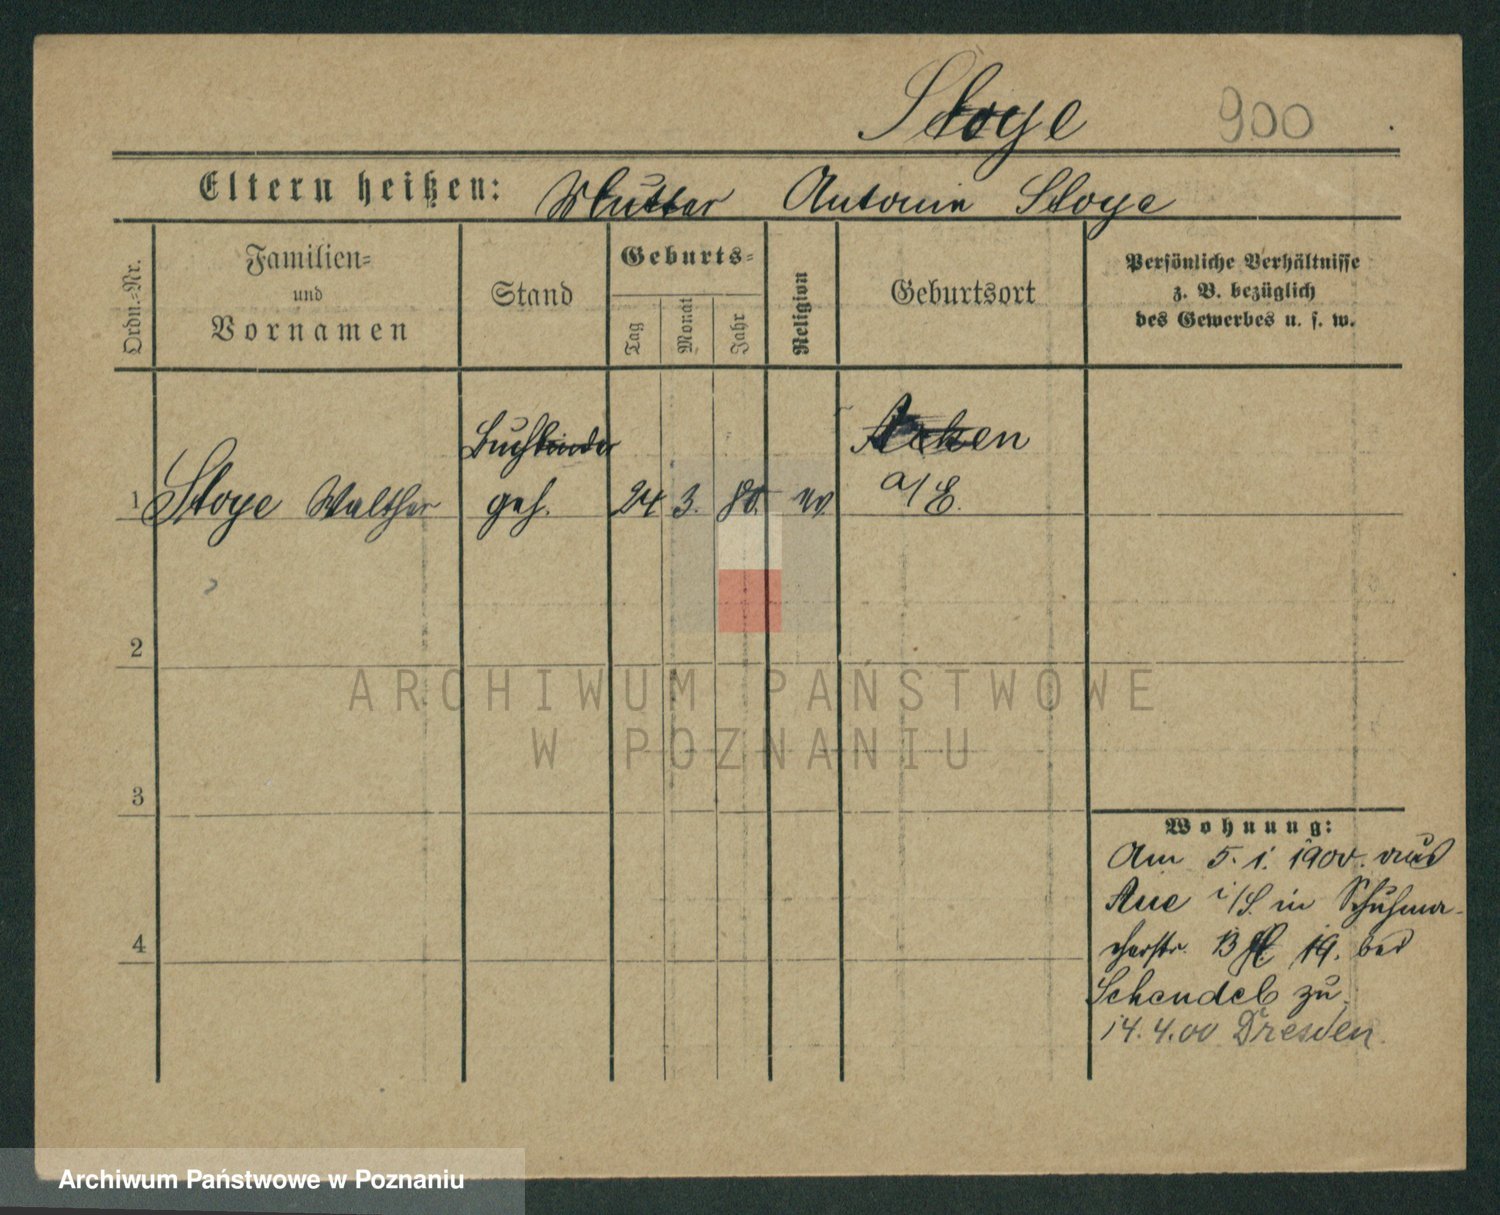 Stoye 900
Eltern heißen: Mutter Antonie Stoye
Ordn.-Nr.
Familien-
und
Vornamen
Stand
Geburts-
Tag
Monat
Jahr
Religion
Geburtsort
Persönliche Verhältnisse
z. B. bezüglich
des Gewerbes u. s. w.
Buchbinder
Acken
1 Stoye Walther geh. 24 3. 80. ev. a/E.
2
3
4
Wohnung:
Am 5. 1. 1900. aus
Aue i/S. in Schuhma-
cherstr. 19. bei
Schendel zu.
14. 4. 00 Dresden.
ARCHIWUM PAŃSTWOWE
W POZNANIU
Archiwum Państwowe w Poznaniu